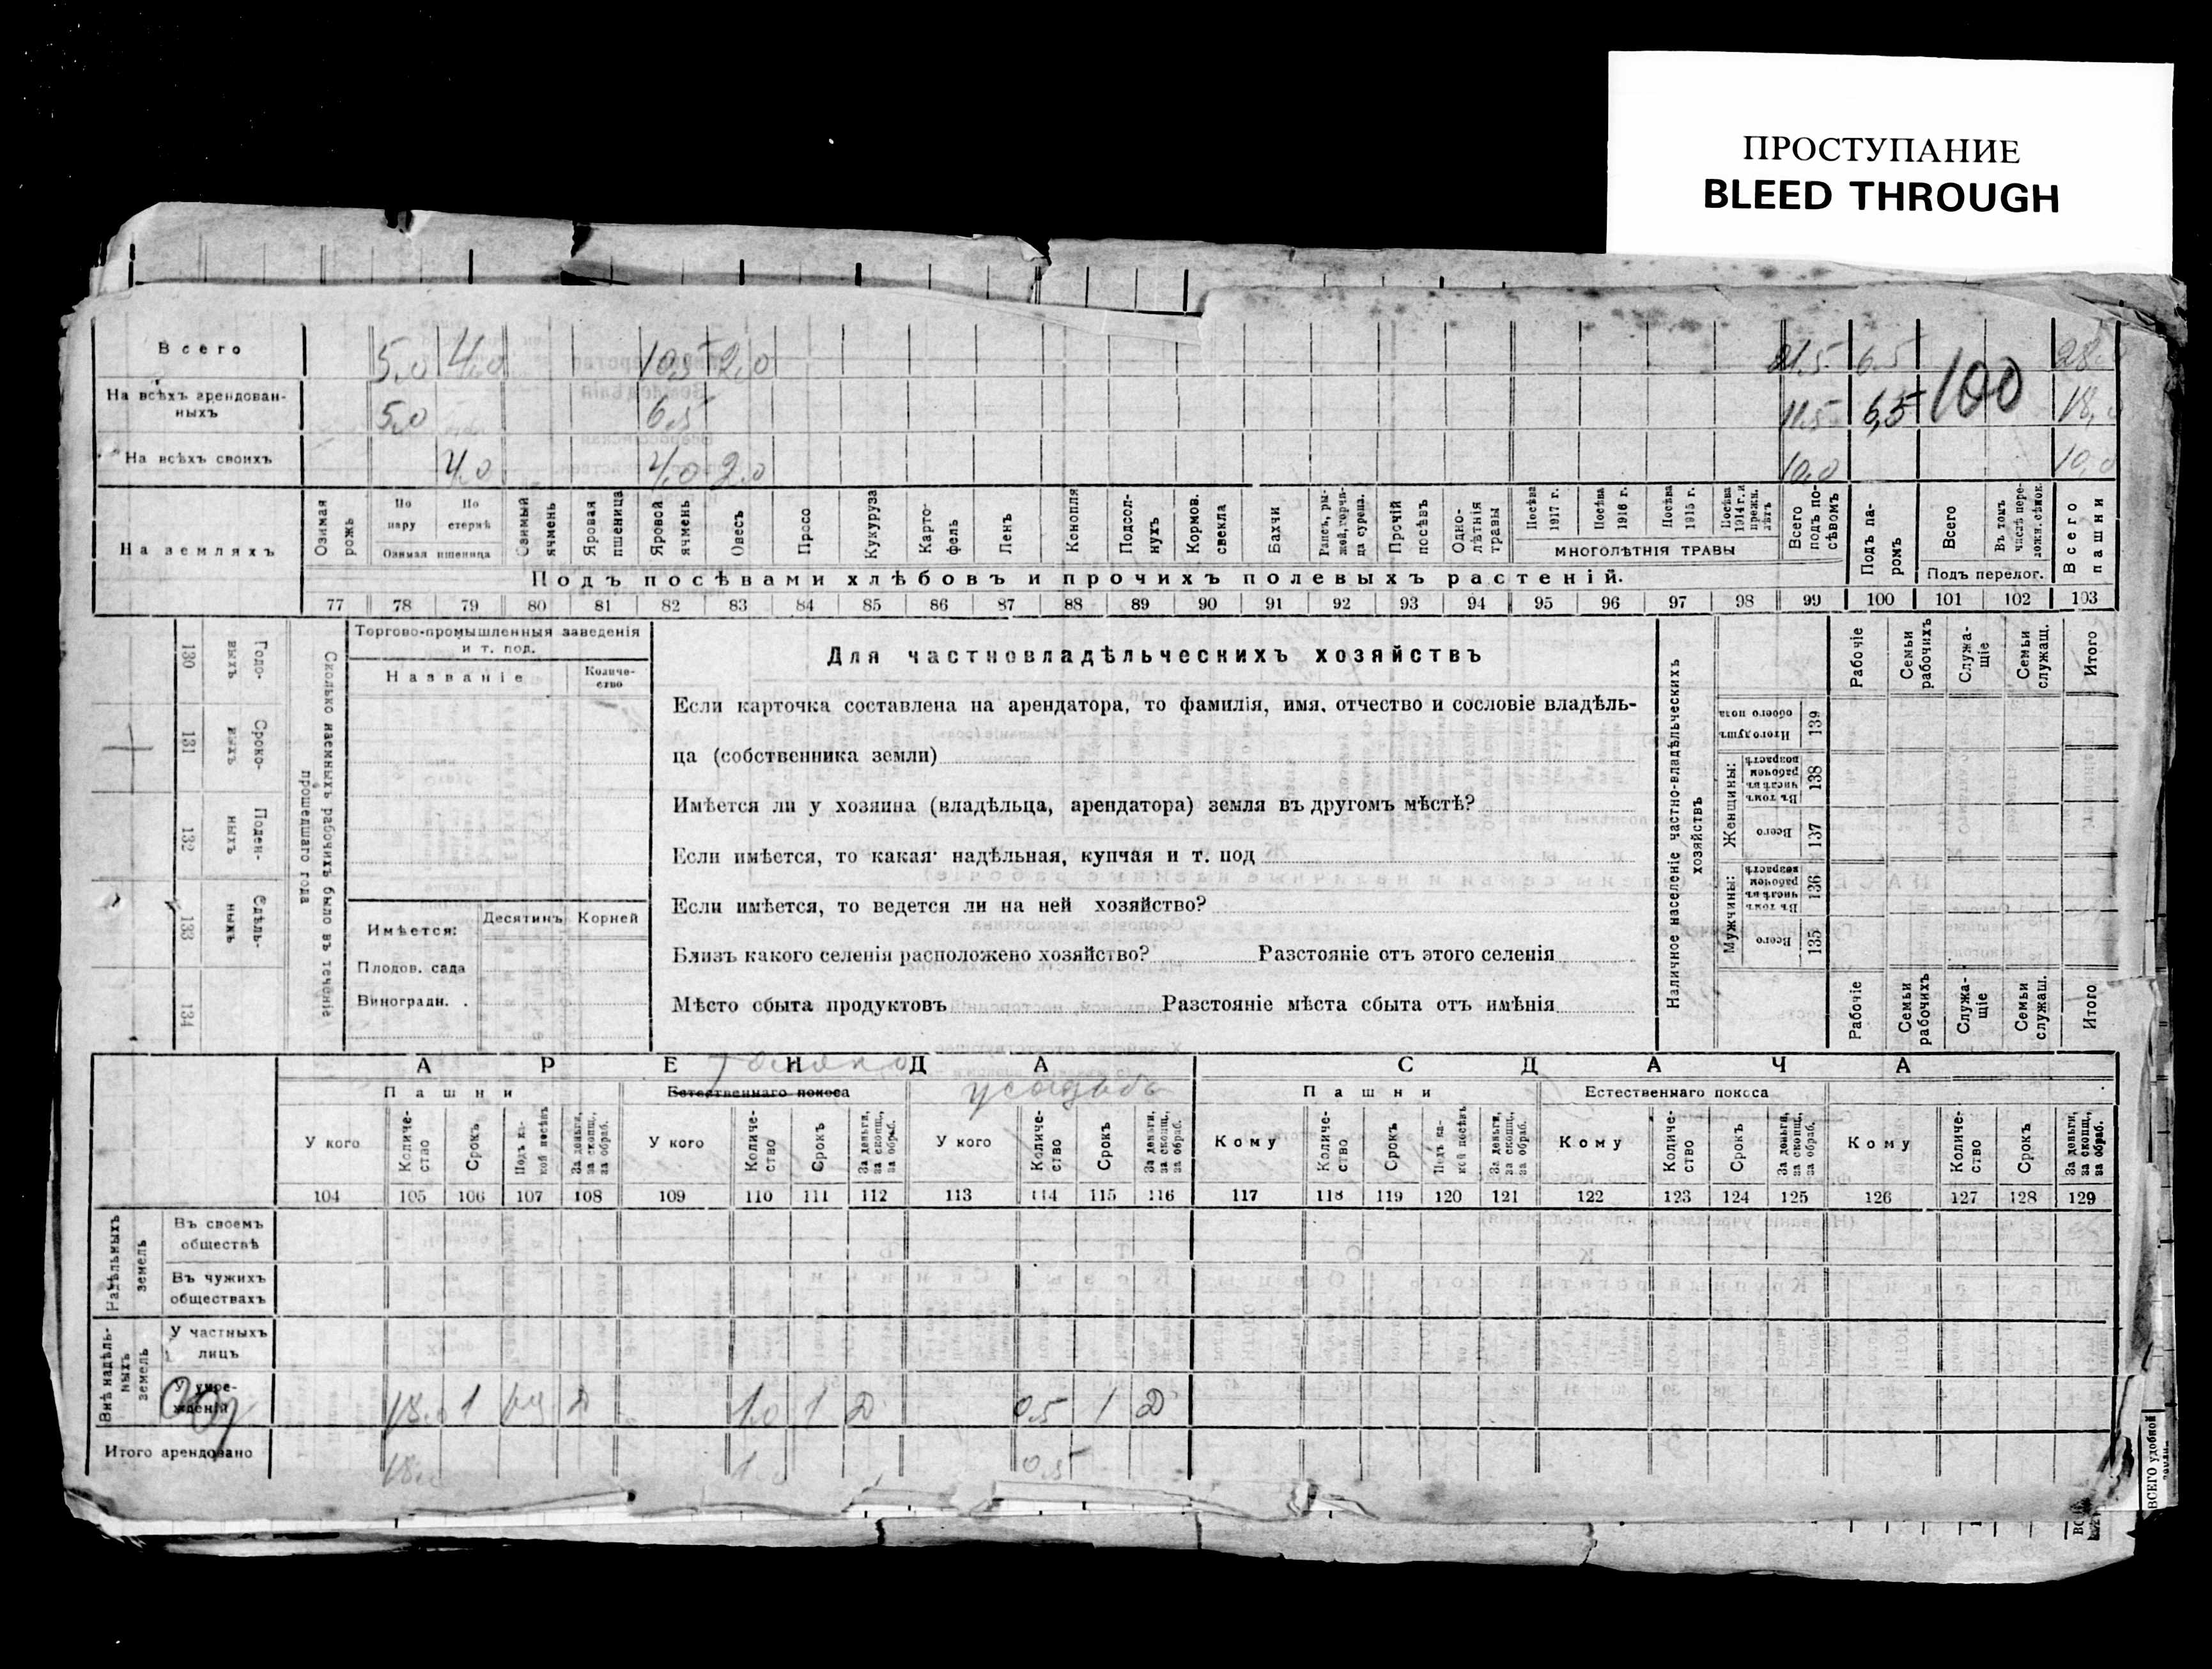 ПРОСТУПАНИЕ
BLEED THROUGH
Всего 5,0 4,0 10,5 2,0 21,5 6,5 100 28,0
На всѣхъ арендован-
ныхъ 5,0 6,5 11,5 6,5 18,0
На всѣхъ своихъ 4,0 4,0 2,0 10,0 10,0
На земляхъ
Озимая рожь
По пару
По стернѣ
Озимая пшеница
Озимый ячмень
Яровая пшеница
Яровой ячмень
Овесъ
Просо
Кукуруза
Карто-
фель
Ленъ
Конопля
Подсол-
нухъ
Кормов.
свекла
Бахчи
Рапсъ, ры-
жей, горчи-
ца сурепа.
Прочій
посѣвъ
Одно-
лѣтнія
травы
Посѣва
1917 г.
Посѣва
1916 г.
Посѣва
1915 г.
Посѣва
1914 г. и
прежн.
лѣтъ
МНОГОЛѢТНІЯ ТРАВЫ
Всего
подъ по-
сѣвомъ
Подъ па-
ромъ
Всего
Въ томъ
числѣ пере-
ложн. сѣнок.
Подъ перелог.
Всего
пашни
Подъ посѣвами хлѣбовъ и прочихъ полевыхъ растеній.
77 78 79 80 81 82 83 84 85 86 87 88 89 90 91 92 93 94 95 96 97 98 99 100 101 102 103
Сколько наемныхъ рабочихъ было въ теченіе
прошедшаго года
Годо-
выхъ
130
Сроко-
ныхъ
131
Поден-
ныхъ
132
Сдѣль-
нымъ
133
134
Торгово-промышленныя заведенія
и т. под.
Названіе
Количе-
ство
Имѣется:
Десятинъ Корней
Плодов. сада
Виноградн.
Для частновладѣльческихъ хозяйствъ
Если карточка составлена на арендатора, то фамилія, имя, отчество и сословіе владѣль-
ца (собственника земли)
Имѣется ли у хозяина (владѣльца, арендатора) земля въ другомъ мѣстѣ?
Если имѣется, то какая: надѣльная, купчая и т. под
Если имѣется, то ведется ли на ней хозяйство?
Близъ какого селенія расположено хозяйство? Разстояніе отъ этого селенія
Мѣсто сбыта продуктовъ Разстояніе мѣста сбыта отъ имѣнія
Наличное населеніе частно-владѣльческихъ
хозяйствъ
Рабочіе
Семьи
рабочихъ
Служа-
щіе
Семьи
служащ.
Итого
Итого душъ
обоего пола
139
Женщины:
Въ томъ
числѣ въ
рабочемъ
возрастѣ
138
Всего
137
Мужчины:
Въ томъ
числѣ въ
рабочемъ
возрастѣ
136
Всего
135
Рабочіе
Семьи
рабочихъ
Служа-
щіе
Семьи
служащ.
Итого
АРЕНДА
СДАЧА
Пашни
Естественнаго покоса
усадьбы
Пашни
Естественнаго покоса
У кого
Количе-
ство
Срокъ
Подъ ка-
кой посѣвъ
За деньги,
за скопщ.,
за обраб.
У кого
Количе-
ство
Срокъ
За деньги,
за скопщ.,
за обраб.
У кого
Количе-
ство
Срокъ
За деньги,
за скопщ.,
за обраб.
Кому
Количе-
ство
Срокъ
Подъ ка-
кой посѣвъ
За деньги,
за скопщ.,
за обраб.
Кому
Количе-
ство
Срокъ
За деньги,
за скопщ.,
за обраб.
Кому
Количе-
ство
Срокъ
За деньги,
за скопщ.,
за обраб.
104 105 106 107 108 109 110 111 112 113 114 115 116 117 118 119 120 121 122 123 124 125 126 127 128 129
Надѣльныхъ
земель
Въ своемъ
обществѣ
Въ чужихъ
обществахъ
Внѣ надѣль-
ныхъ
земель
У частныхъ
лицъ
У учре-
жденій 18,0 1 Д 1,0 1 Д 0,5 1 Д
Итого арендовано 18,0 1,0 0,5
ВСЕГО удобной